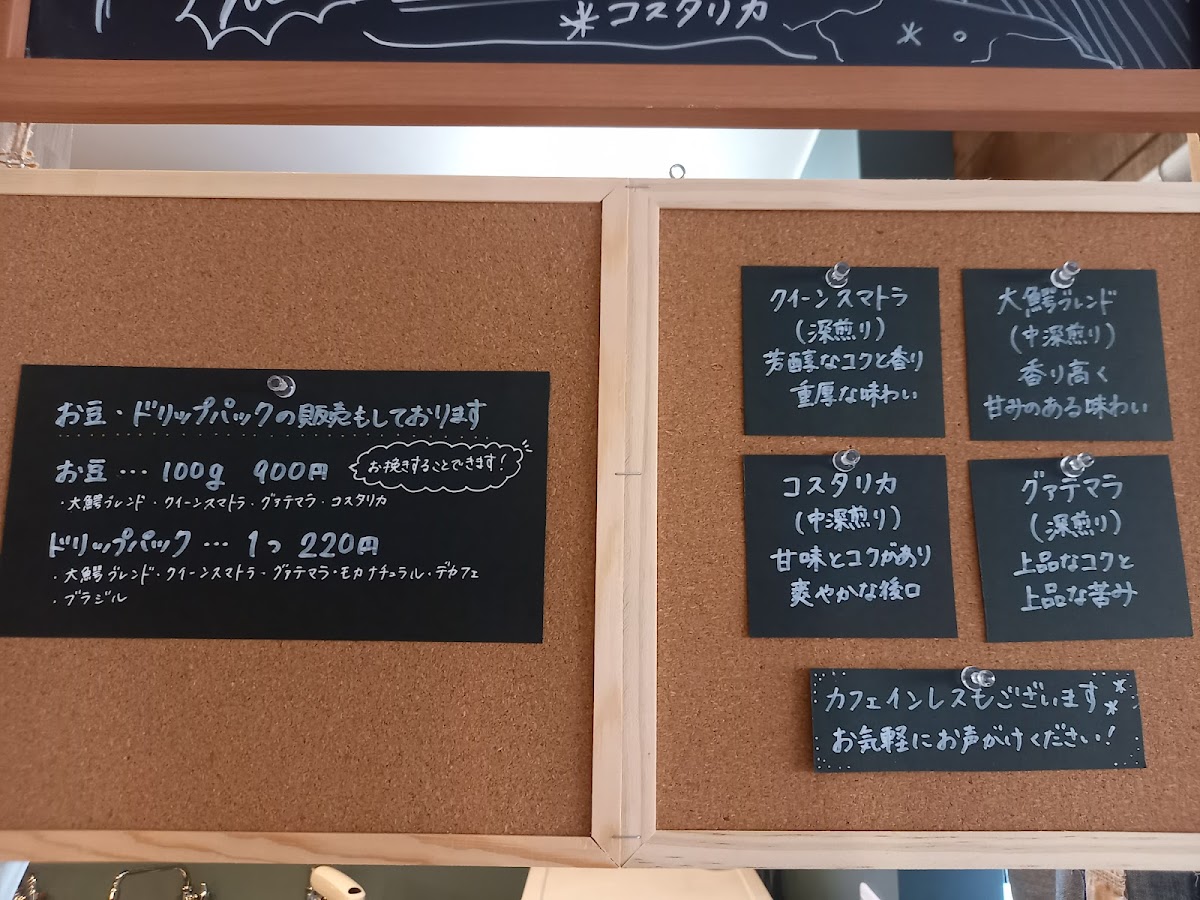 コスタリカ
お豆・ドリップパックの販売もしております
お豆 … 100g 900円
お挽きすることできます!
・大鰐ブレンド ・クイーンスマトラ・グァテマラ・コスタリカ
ドリップパック … 1つ 220円
・大鰐ブレンド・クイーンスマトラ・グァテマラ・モカナチュラル・デカフェ
・ブラジル
クイーンスマトラ
(深煎り)
芳醇なコクと香り
重厚な味わい
大鰐ブレンド
(中深煎り)
香り高く
甘みのある味わい
コスタリカ
(中深煎り)
甘味とコクがあり
爽やかな後口
グァテマラ
(深煎り)
上品なコクと
上品な苦み
カフェインレスもございます
お気軽にお声がけください!